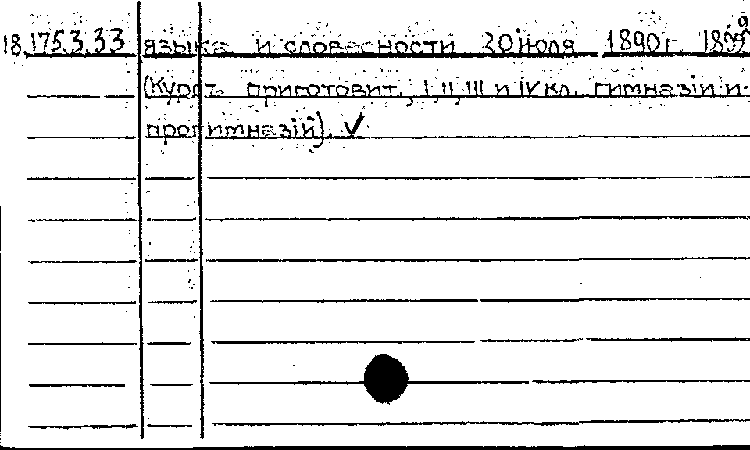 18.175.3.33 языка и словесности 20 июля 1890 г. 1899
(Курст. приготовит., I, II, III и IV кл. гимназiи и
прогимназiй). ✓